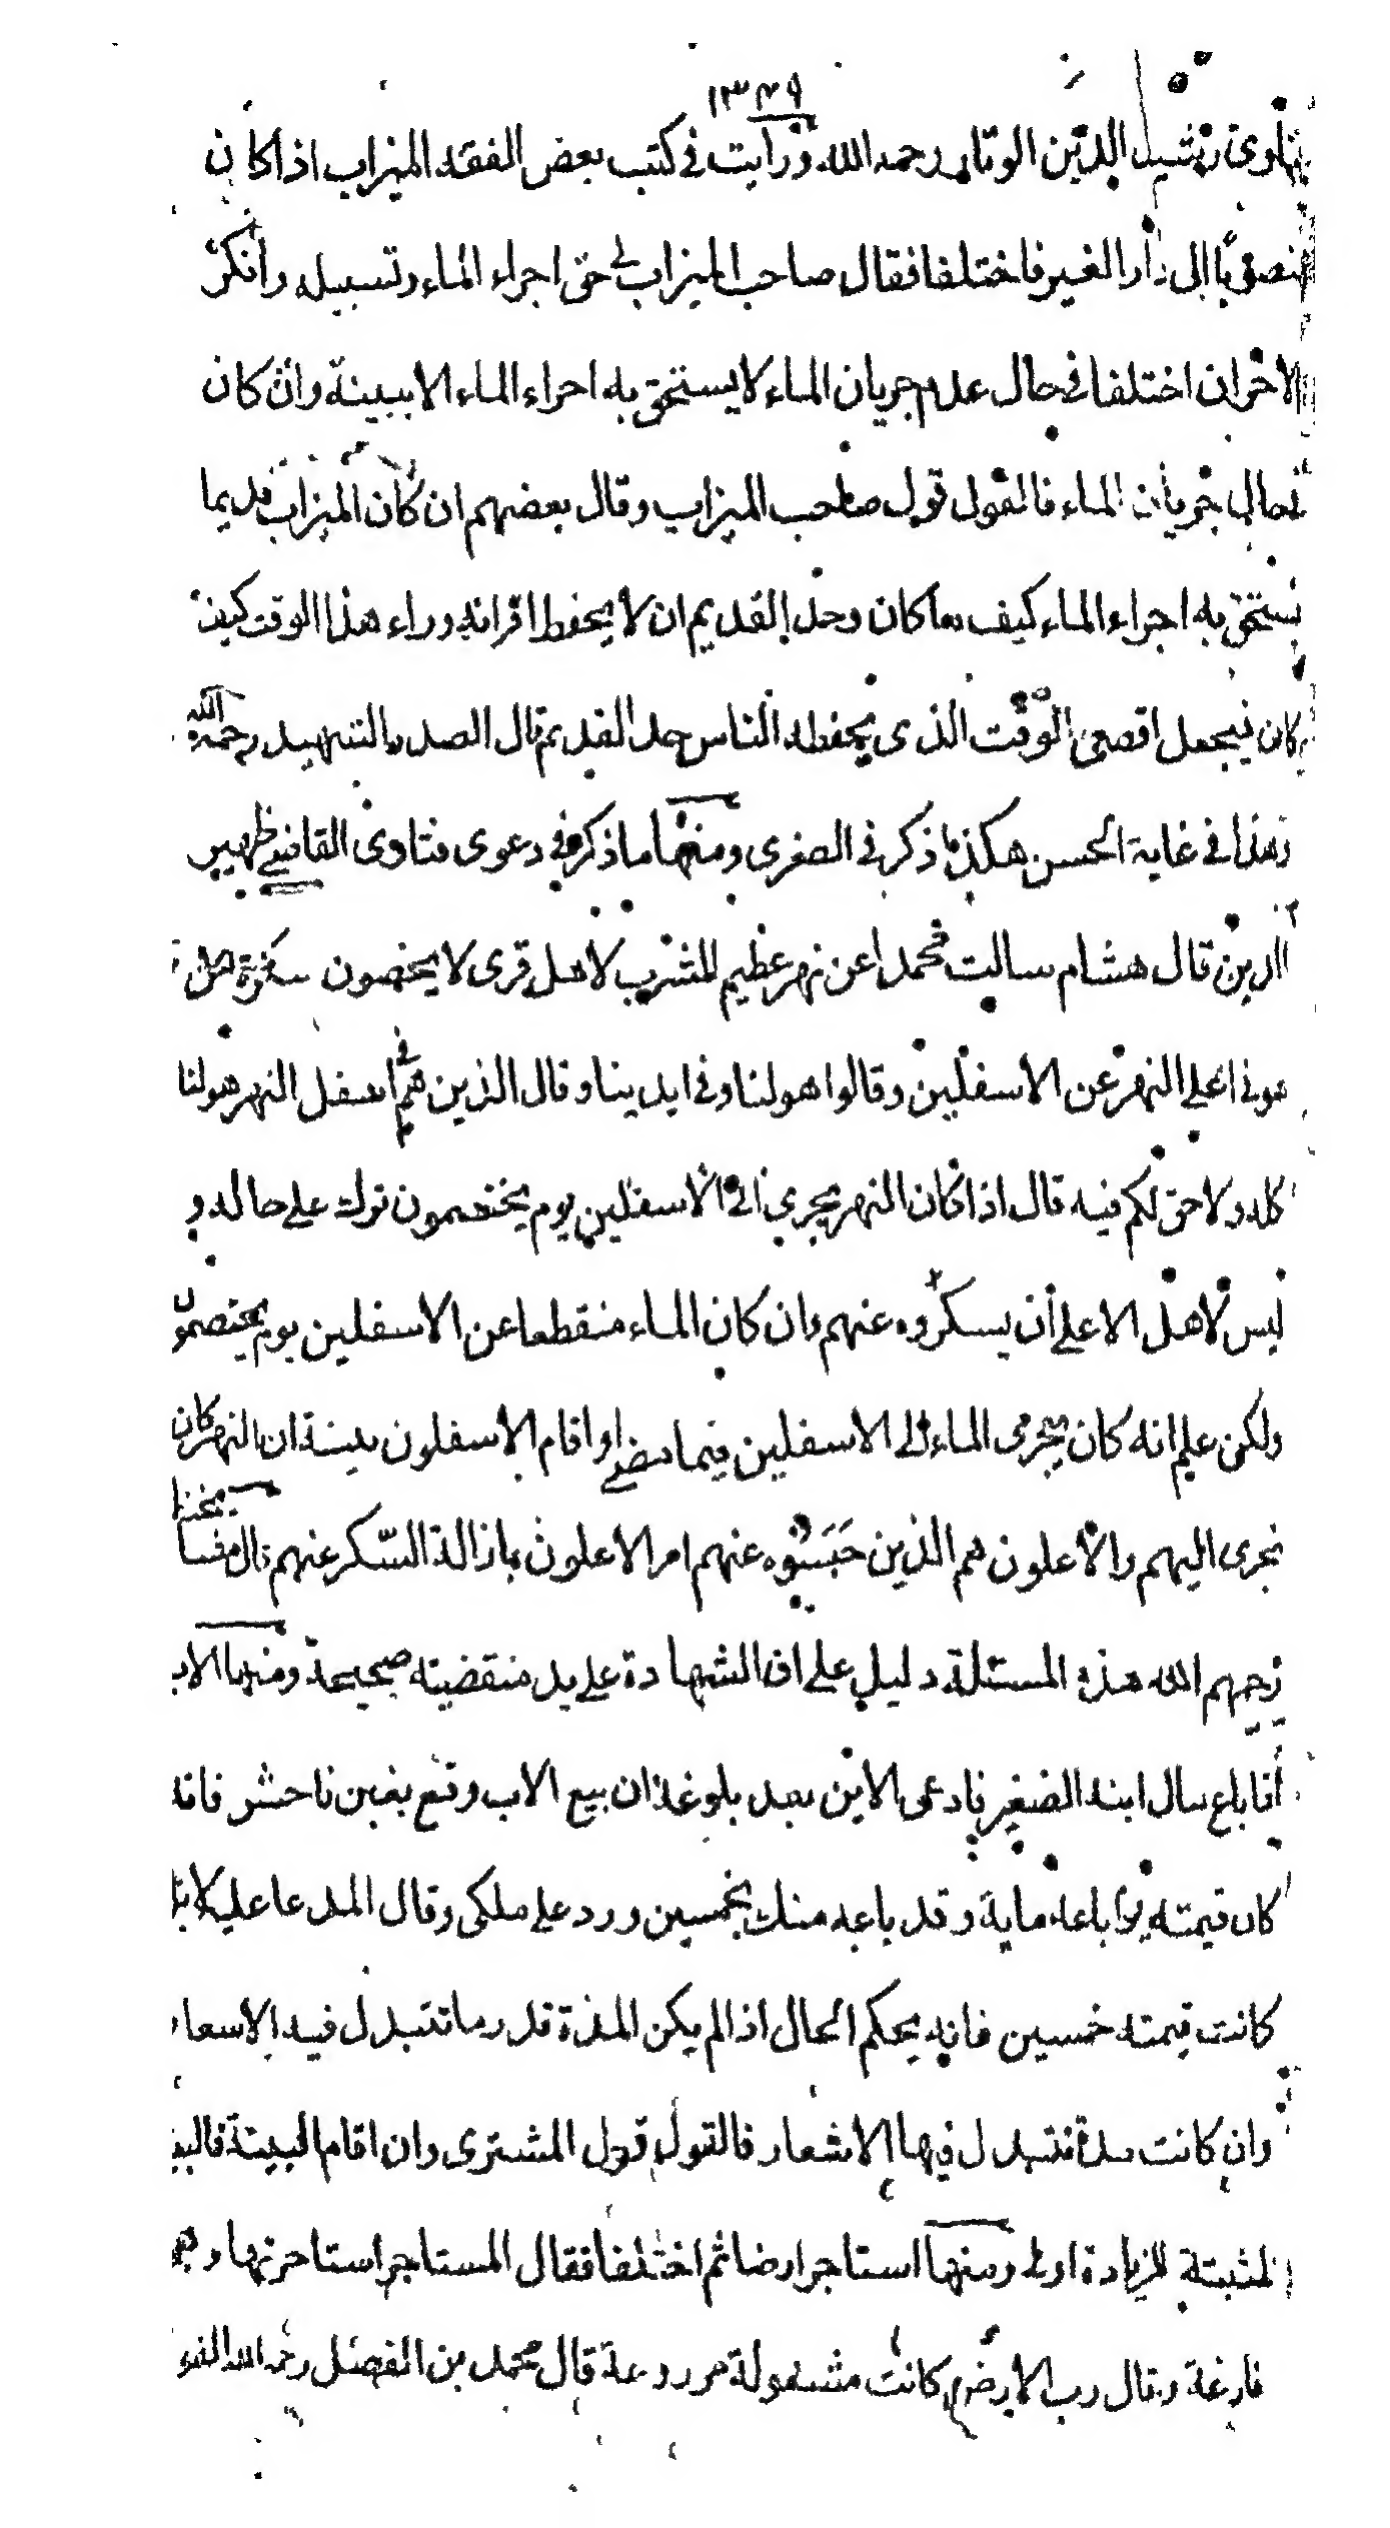 ١٣٧٩
فتاوى رشيد الدين الوتار رحمه الله ورأيت في كتب بعض الفقه الميزاب اذا كان
منصوبًا الى دار الغير فاختلفا فقال صاحب الميزاب لي حق اجراء الماء وتسييله وأنكر
الاخر ان اختلفا في حال عدم جريان الماء لا يستحق به اجراء الماء الا ببينة وان كان
في حال جريان الماء فالقول قول صاحب الميزاب وقال بعضهم ان كان الميزاب قديما
يستحق به اجراء الماء كيف ما كان وحد القديم ان لا يحفظ اقرانه وراء هذا الوقت كيف
كان فيجعل اقصى الوقت الذي يحفظه الناس حد القديم قال الصدر الشهيد رحمه الله
وهذا في غاية الحسن هكذا ذكر في الصغرى ومنها ما ذكر في دعوى فتاوى القاضي ظهير
الدين قال هشام سالت محمدا عن نهر عظيم الشرب لاهل قرى لا يحصون سكره من
هو في اعلى النهر عن الاسفلين وقالوا هو لنا وفي ايدينا وقال الذين هم في اسفل النهر هو لنا
كله ولا حق لكم فيه قال اذا كان النهر يجري الى الاسفلين يوم يختصمون ترك على حاله و
ليس لاهل الاعلى أن يسكروه عنهم وان كان الماء منقطعا عن الاسفلين يوم يختصمون
ولكن علم انه كان يجرى الماء الى الاسفلين فيما مضى او اقام الاسفلون بينة ان النهر كان
يجرى اليهم والاعلون هم الذين حَبَسُوه عنهم امر الاعلون بازالة السّكر عنهم قال مشايخنا
رحمهم الله هذه المسئلة دليل على ان الشهادة على يد منقضية صحيحة ومنها الاب
اذا باع مال ابنه الصغير فادعى الابن بعد بلوغه ان بيع الاب وقع بغبن فاحش فانه
كان قيمته يوم باعه ماية وقد باعه منك بخمسين ورد على ملكى وقال المدعا عليه لا بل
كانت قيمته خمسين فانه يحكم الحال اذا لم يكن المدة قدر ما تتبدل فيه الاسعار
وان كانت مدة تتبدل فيها الاسعار فالقول قول المشترى وان اقاما البينة فالبينة
المثبتة للزيادة اولى ومنها استاجر ارضا ثم اختلفا فقال المستاجر استاجرتها وهي
فارغة وقال رب الارض كانت مشغولة مزروعة قال محمد بن الفضل رحمه الله القول